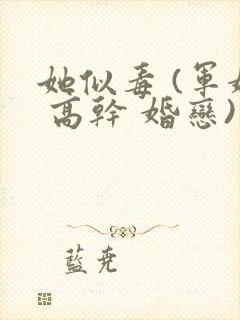 她似毒 (軍
高幹 婚戀)
藍尧